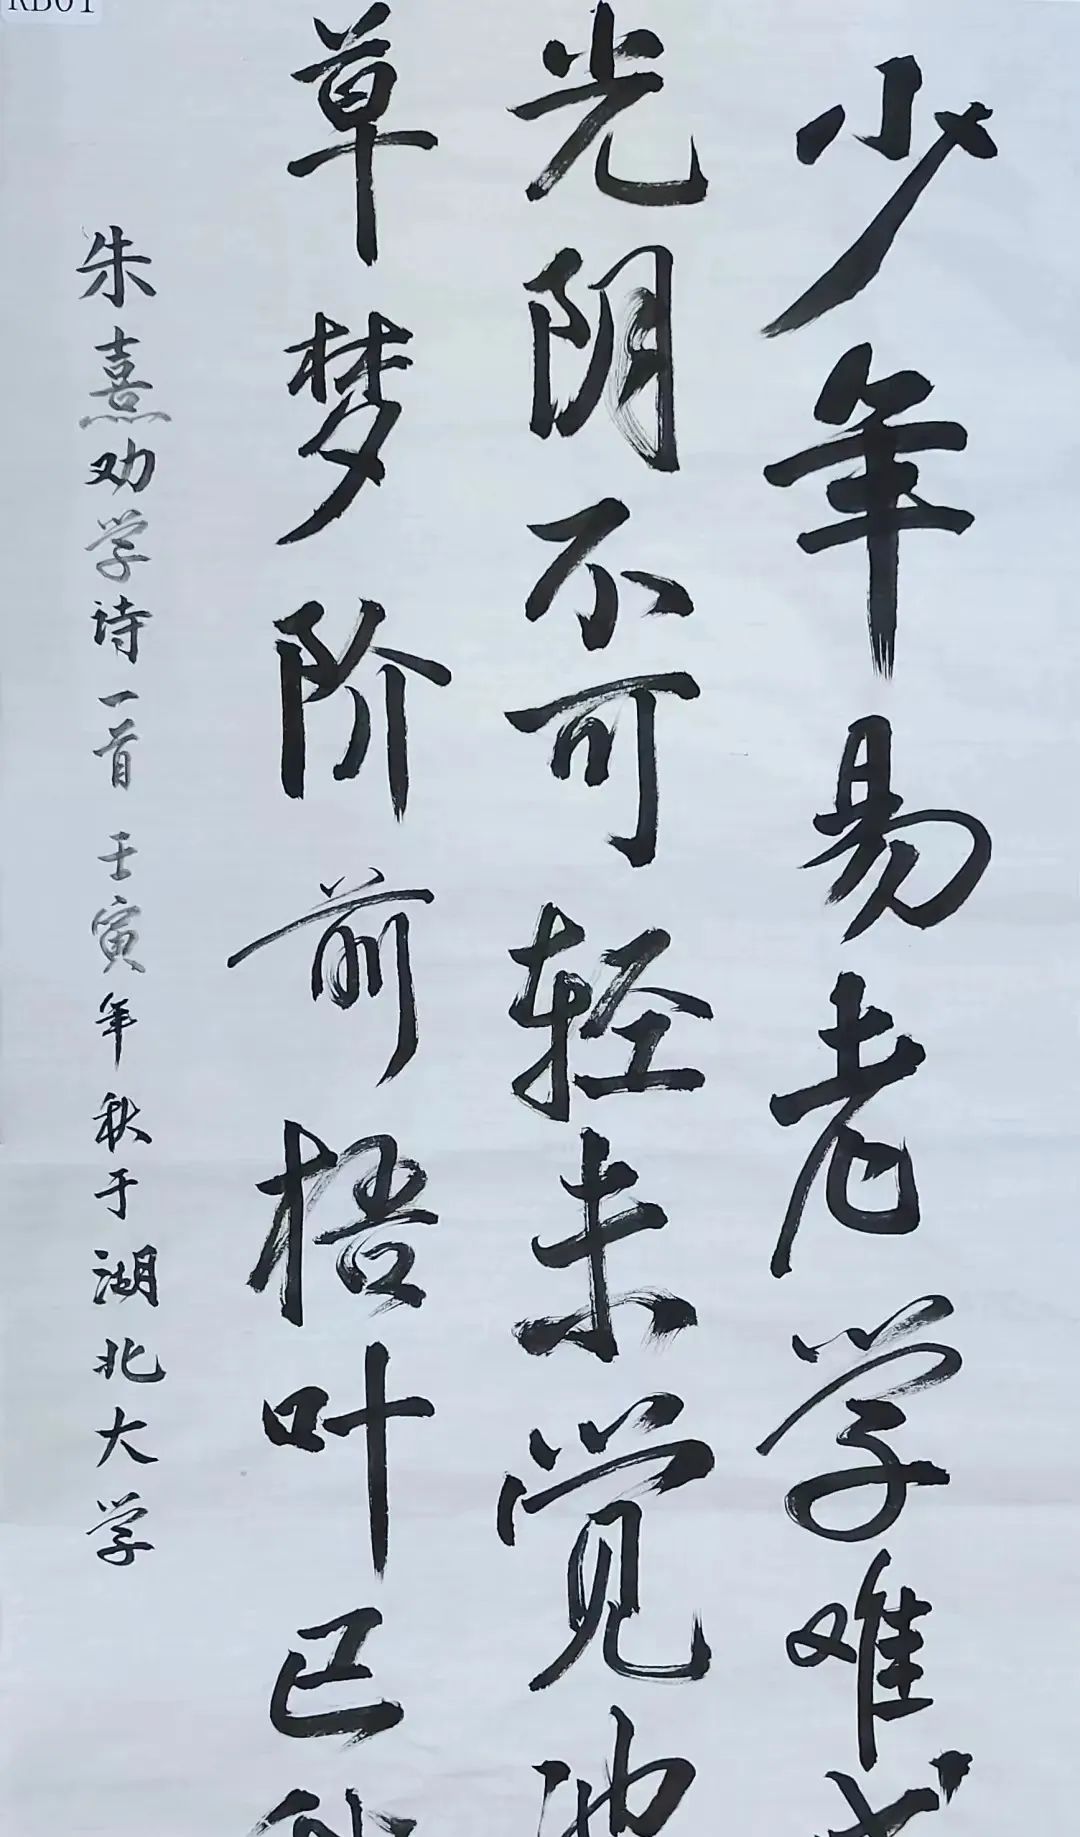 RB01
少年易老学难成
光阴不可轻未觉池
草梦阶前梧叶已秋
朱熹劝学诗一首 壬寅年秋于湖北大学